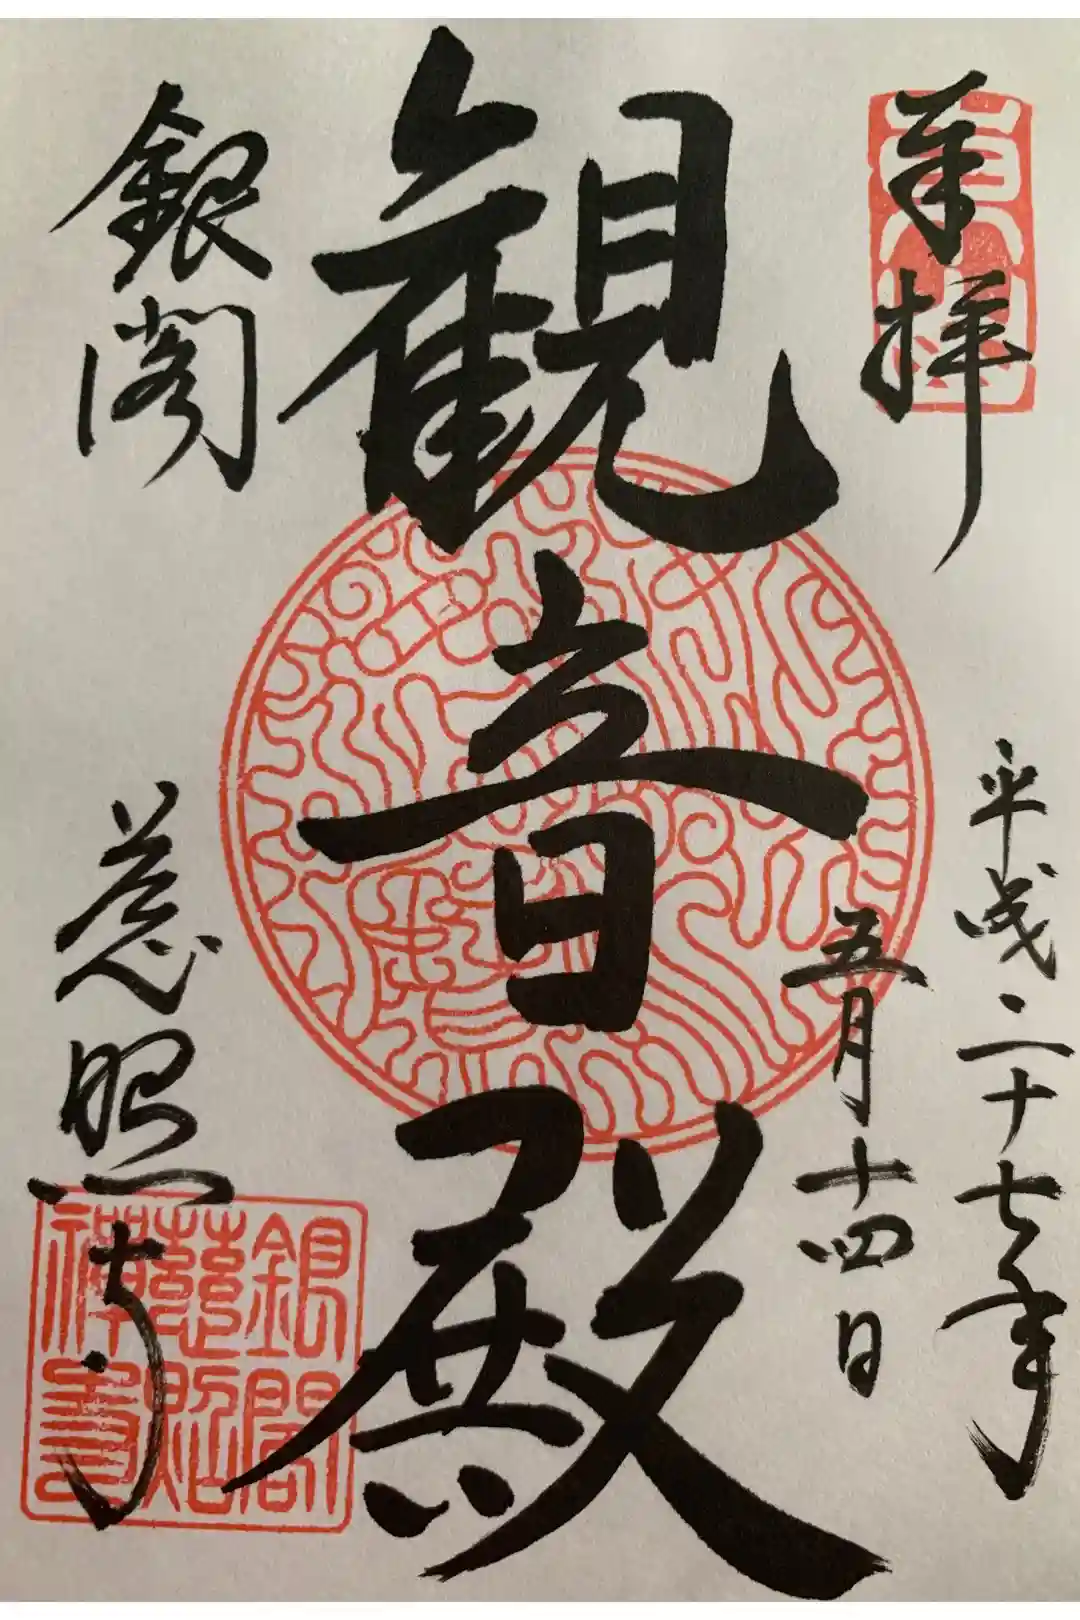 奉拝
平成二十七年
五月十四日
観音殿
銀閣
慈照寺
銀閣
慈照
禅寺